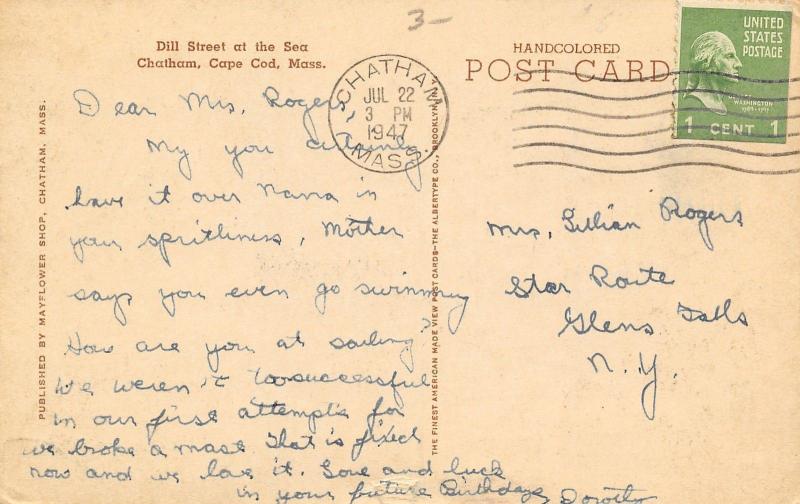 3-
Dill Street at the Sea
Chatham, Cape Cod, Mass.
HANDCOLORED
POST CARD
UNITED
STATES
POSTAGE
WASHINGTON
1 CENT 1
CHATHAM
JUL 22
3 PM
1947
MASS.
PUBLISHED BY MAYFLOWER SHOP, CHATHAM, MASS.
THE FINEST AMERICAN MADE VIEW POST CARDS—THE ALBERTYPE CO., BROOKLYN, N.Y.
Dear Mrs. Rogers,
My you certainly
have it over Nana in
your spritliness, Mother
says you even go swimming
How are you at sailing?
We weren't too successful
in our first attempts for
we broke a mast. That is fixed
now and we love it. Love and luck
in your future Birthdays Dorothy
Mrs. Lillian Rogers
Star Route
Glens Falls
N.Y.